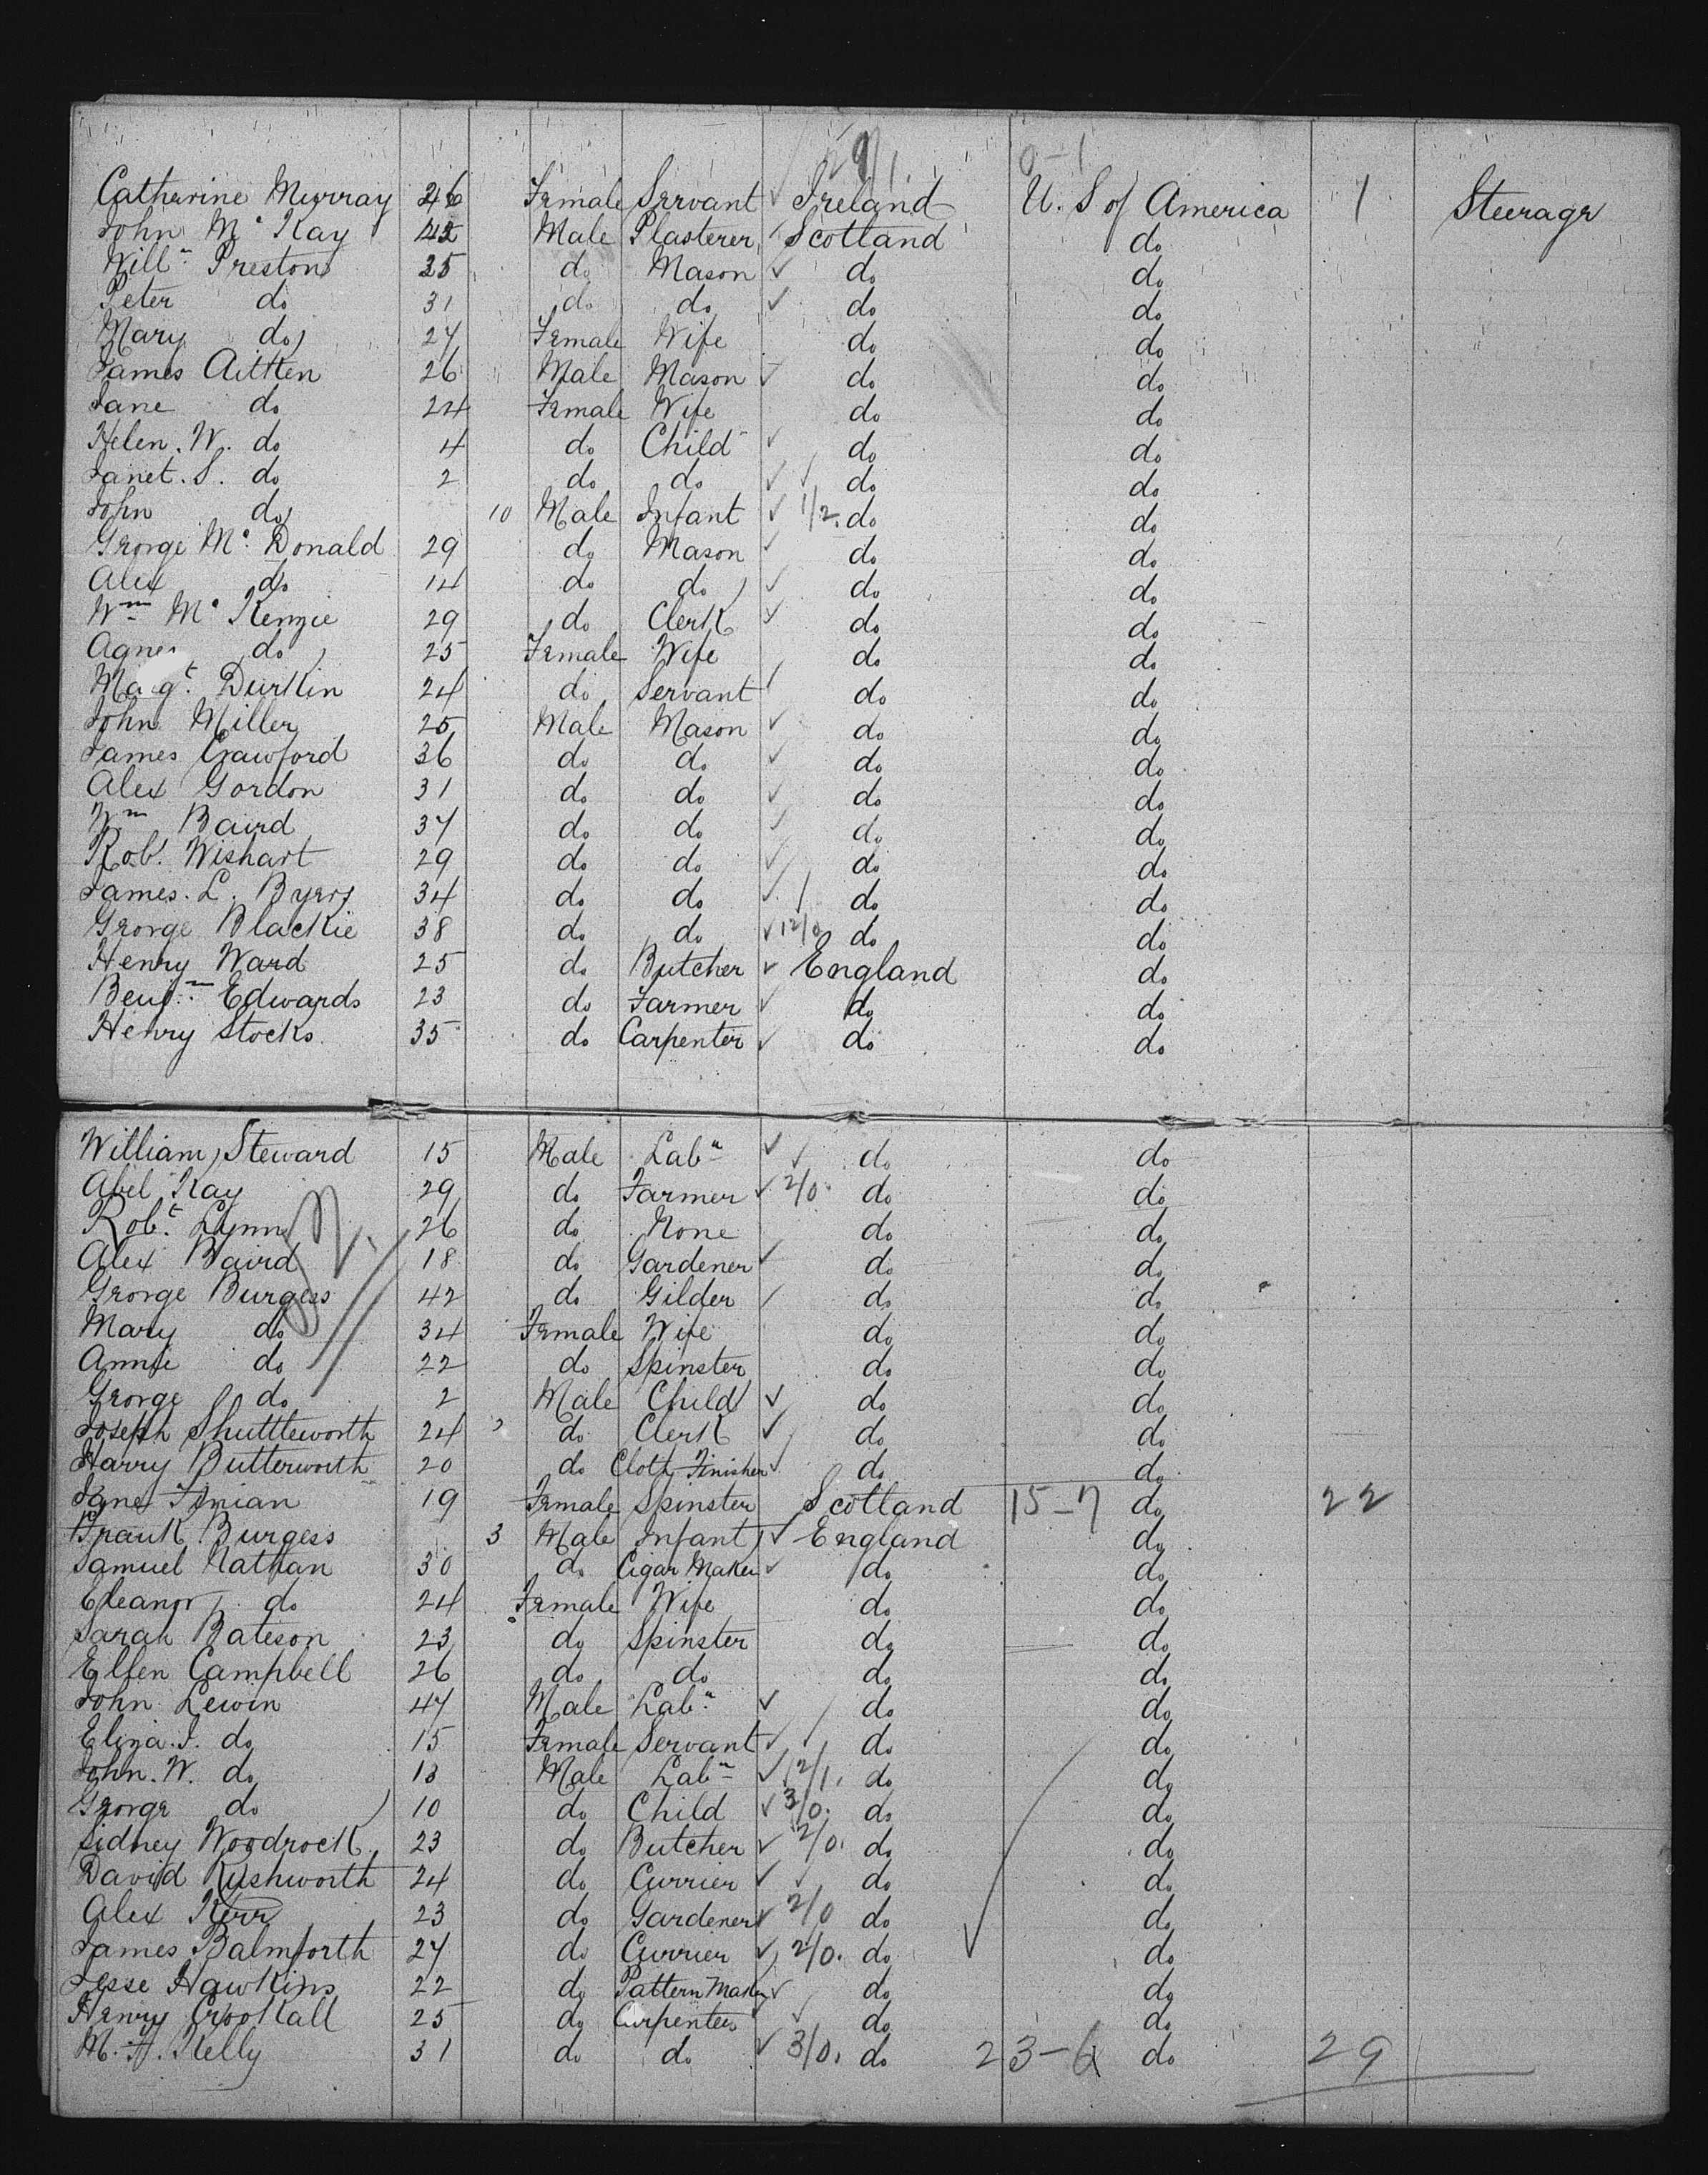 29/1. 0-1
Catherine Murray 26 Female Servant Ireland U. S of America 1 Steerage
John Mc Kay 42 Male Plasterer Scotland do
Willm Preston 25 do Mason do do
Peter do 31 do do do do
Mary do 27 Female Wife do do
James Aitken 26 Male Mason do do
Jane do 24 Female Wife do do
Helen. W. do 4 do Child do do
Janet. S. do 2 do do do do
John do 10 Male Infant 1/2. do do
George Mc Donald 29 do Mason do do
Alex do 14 do do do do
Wm Mc Kenzie 29 do Clerk do do
Agnes do 25 Female Wife do do
Margt. Durkin 24 do Servant do do
John Miller 25 Male Mason do do
James Crawford 36 do do do do
Alex Gordon 31 do do do do
Wm Baird 37 do do do do
Rob. Wishart 29 do do do do
James. L. Byers 34 do do do do
George Blackie 38 do do 12/0 do do
Henry Ward 25 do Butcher England do
Benjn Edwards 23 do Farmer do do
Henry Stocks 35 do Carpenter do do
William Steward 15 Male Labr do do
Abel Kay 29 do Farmer 2/0. do do
Robt. Lynn 26 do None do do
Alex Baird 18 do Gardener do do
George Burgess 42 do Gilder do do
Mary do 34 Female Wife do do
Annie do 22 do Spinster do do
George do 2 Male Child do do
Joseph Shuttleworth 24 do Clerk do do
Harry Butterworth 20 do Cloth Finisher do do
Jane Finian 19 Female Spinster Scotland 15-7 do 22
Frank Burgess 3 Male Infant England do
Samuel Nathan 30 do Cigar Maker do do
Eleanor do 24 Female Wife do do
Sarah Bateson 23 do Spinster do do
Ellen Campbell 26 do do do do
John Lewin 47 Male Labr do do
Eliza. J. do 15 Female Servant do do
John. W. do 13 Male Labr 12/1. do do
George do 10 do Child 3/0. do do
Sidney Woodrock 23 do Butcher 2/0. do do
David Rushworth 24 do Currier do do
Alex Kerr 23 do Gardener 2/0 do do
James Balmforth 27 do Currier 2/0. do do
Jesse Hawkins 22 do Pattern Maker do do
Henry Crookall 25 do Carpenter do do
M. H. Kelly 31 do do 3/0. do 23-6 do 29